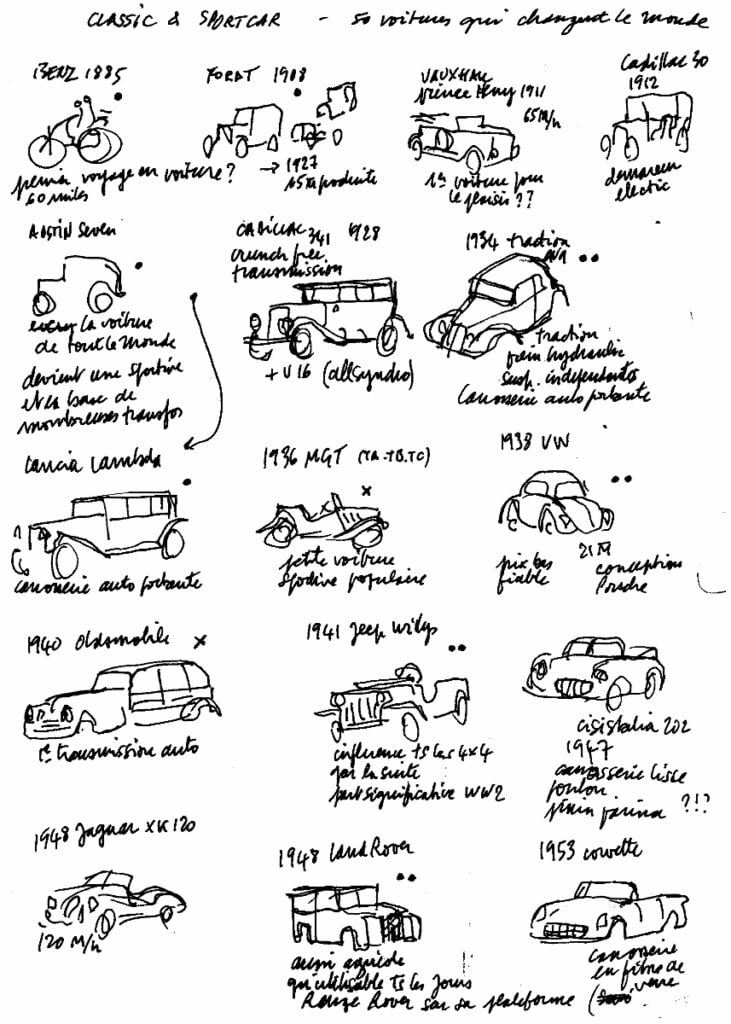 CLASSIC & SPORTCAR - 50 voitures qui changent le monde
BENZ 1885
premier voyage en voiture ?
60 miles
FORD T 1908
→ 1927
15 M produite
VAUXHALL
prince Henry 1911
65 M/h
1re voiture pour
le plaisir ??
Cadillac 30
1912
demareur
electric
AUSTIN Seven
la voiture
de tout le monde
devient une sportive
et la base de
nombreuses transfos
CADILLAC 341 1928
crunch free
transmission
+ V16 (all syncro)
1934 traction
AV
traction
frein hydraulic
susp. independantes
Carosserie auto portante
Lancia Lambda
carosserie auto portante
1936 MGT (TA-TB-TC)
petite voiture
sportive populaire
1938 VW
prix bas
fiable
21 M
conception
Porsche
1940 Oldsmobile
1e transmission auto
1941 Jeep Willys
influence ts les 4x4
par la suite
part significative WW2
cisistalia 202
1947
carrosserie lisse
ponton
pinin farina ?!?
1948 Jaguar XK120
120 M/h
1948 Land Rover
aussi agricole
qu'utilisable ts les jours
Range Rover sur sa plateforme
1953 corvette
carosserie
en fibre de
verre